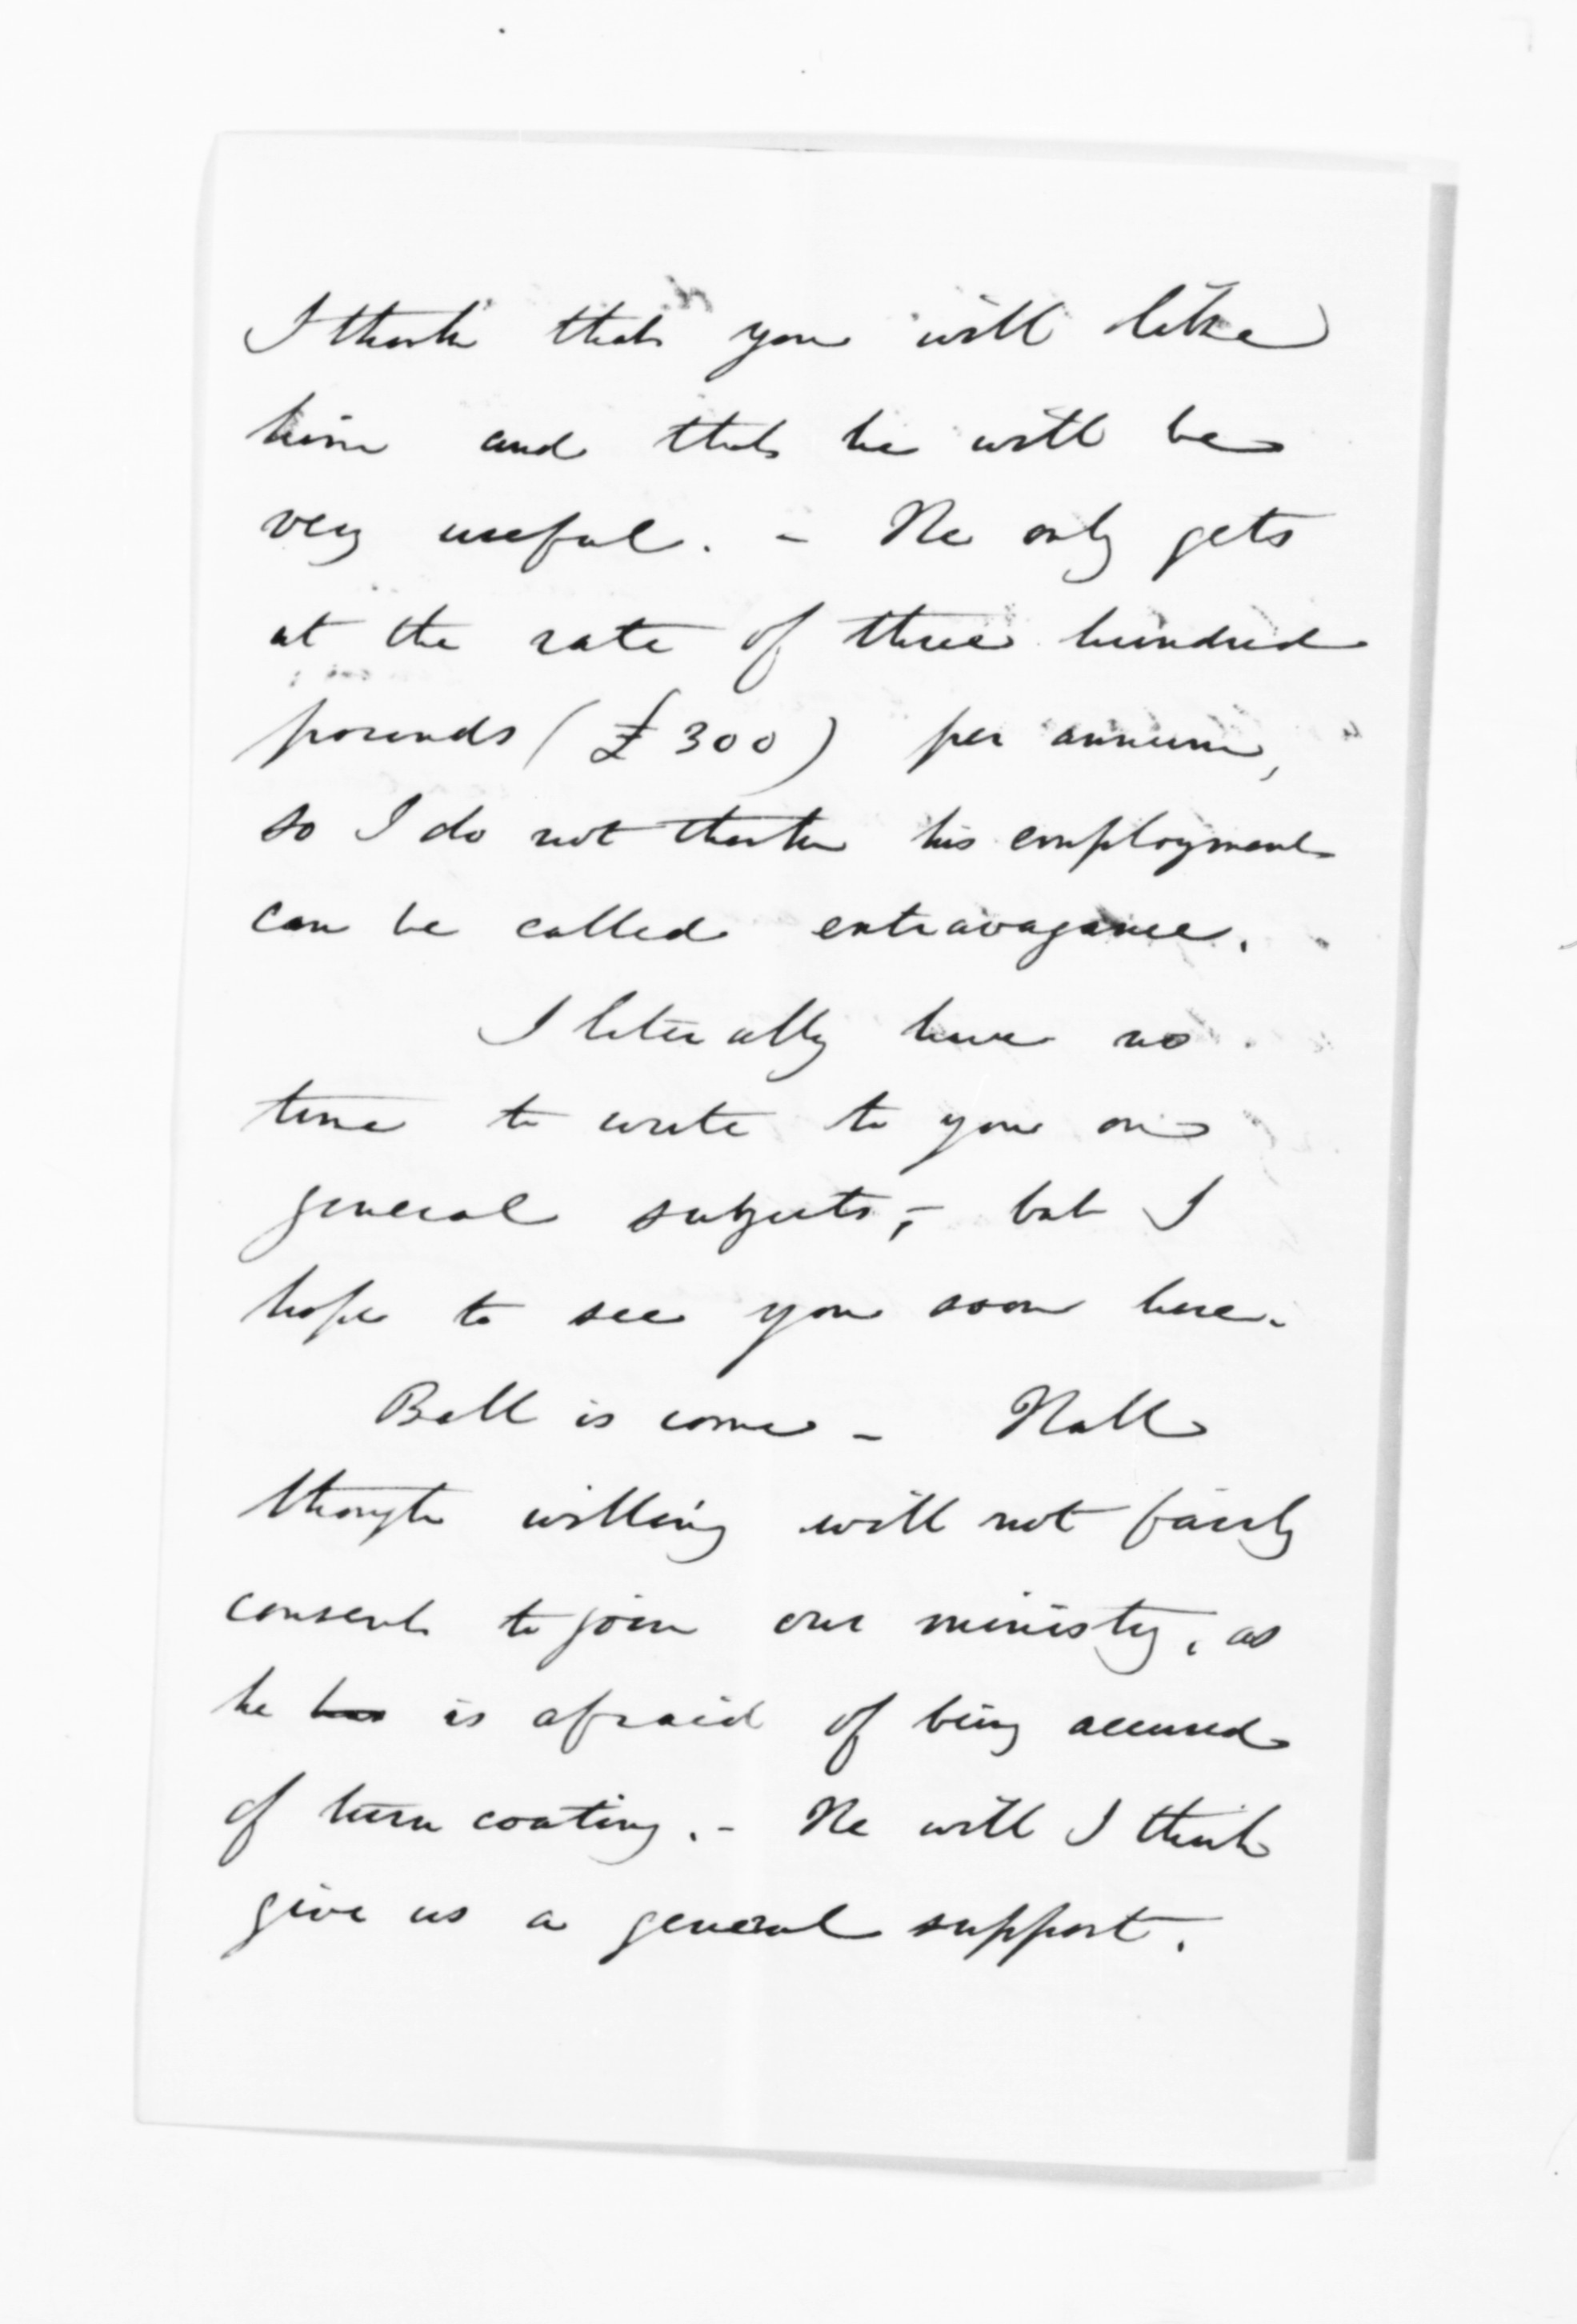 I think that you will like
him and that he will be
very useful. - He only gets
at the rate of three hundred
pounds (£300) per annum,
so I do not think his employment
can be called extravagance.
I literally have no
time to write to you on
general subjects, - but I
hope to see you soon here.
Bell is come - Hall
though willing will not fairly
consent to join our ministry, as
he has is afraid of being accused
of turn coating. - He will I think
give us a general support.